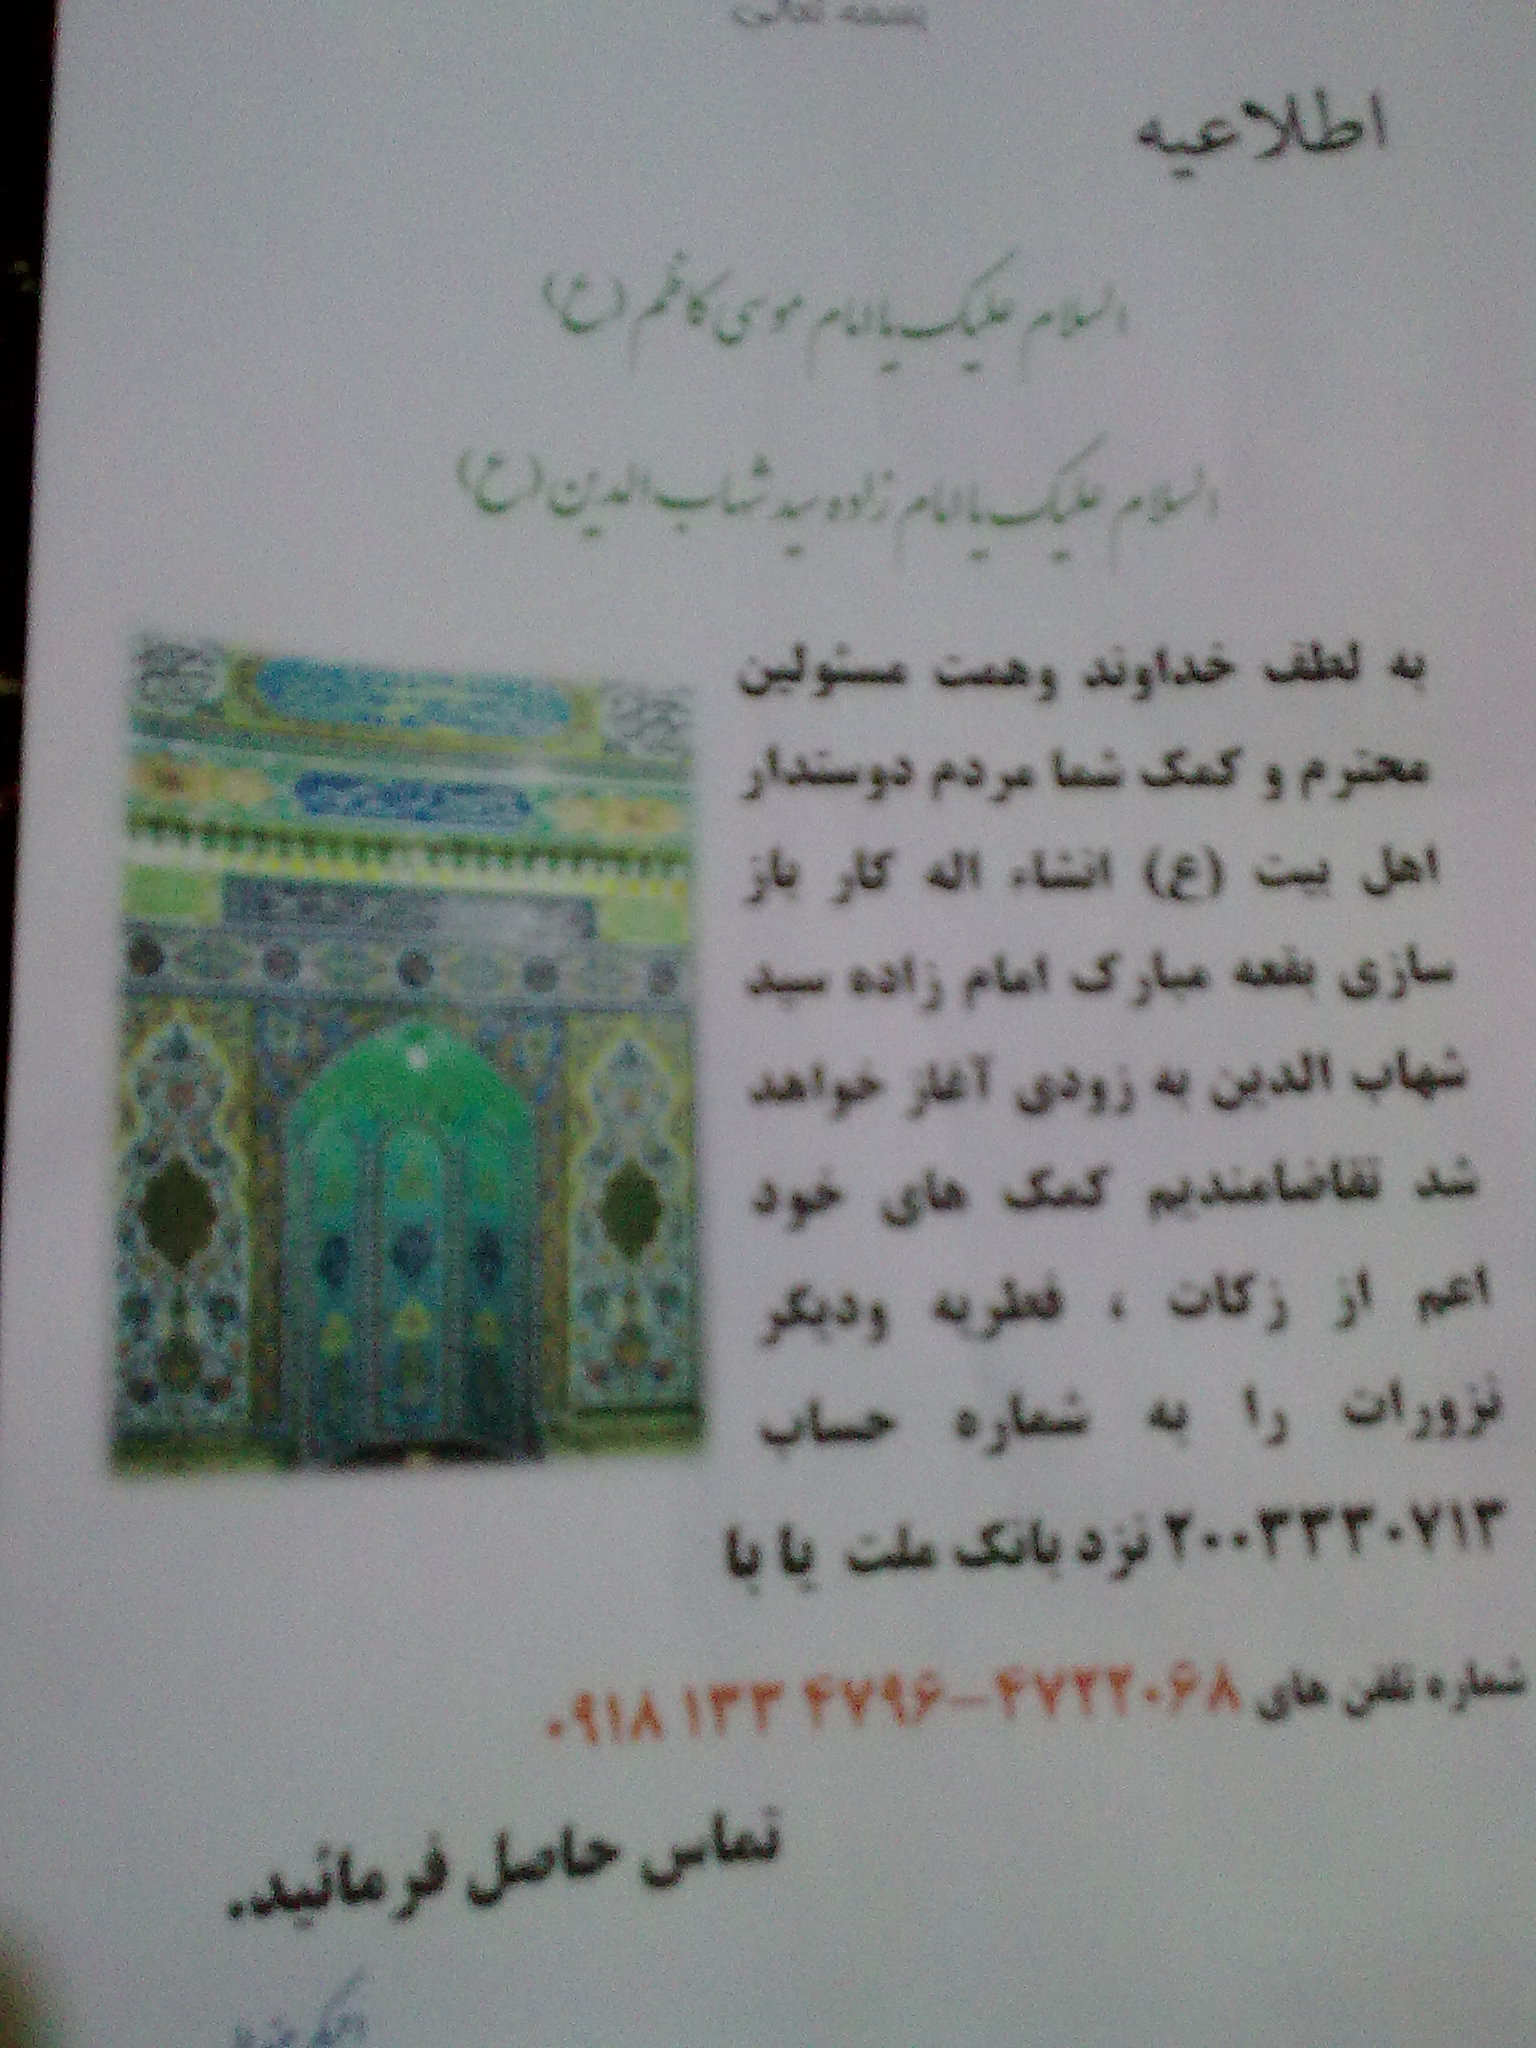 بسمه تعالی
اطلاعیه
السلام علیک یا امام موسی کاظم (ع)
السلام علیک یا امام زاده سید شهاب الدین (ع)
به لطف خداوند وهمت مسئولین
محترم و کمک شما مردم دوستدار
اهل بیت (ع) انشاء اله کار باز
سازی بقعه مبارک امام زاده سید
شهاب الدین به زودی آغاز خواهد
شد تقاضامندیم کمک های خود
اعم از زکات ، فطریه ودیگر
نزورات را به شماره حساب
۲۰۰۳۳۳۰۷۱۳ نزد بانک ملت یا با
شماره تلفن های ۴۷۲۲۰۶۸-۰۹۱۸ ۱۳۳ ۴۷۹۶
تماس حاصل فرمائید.